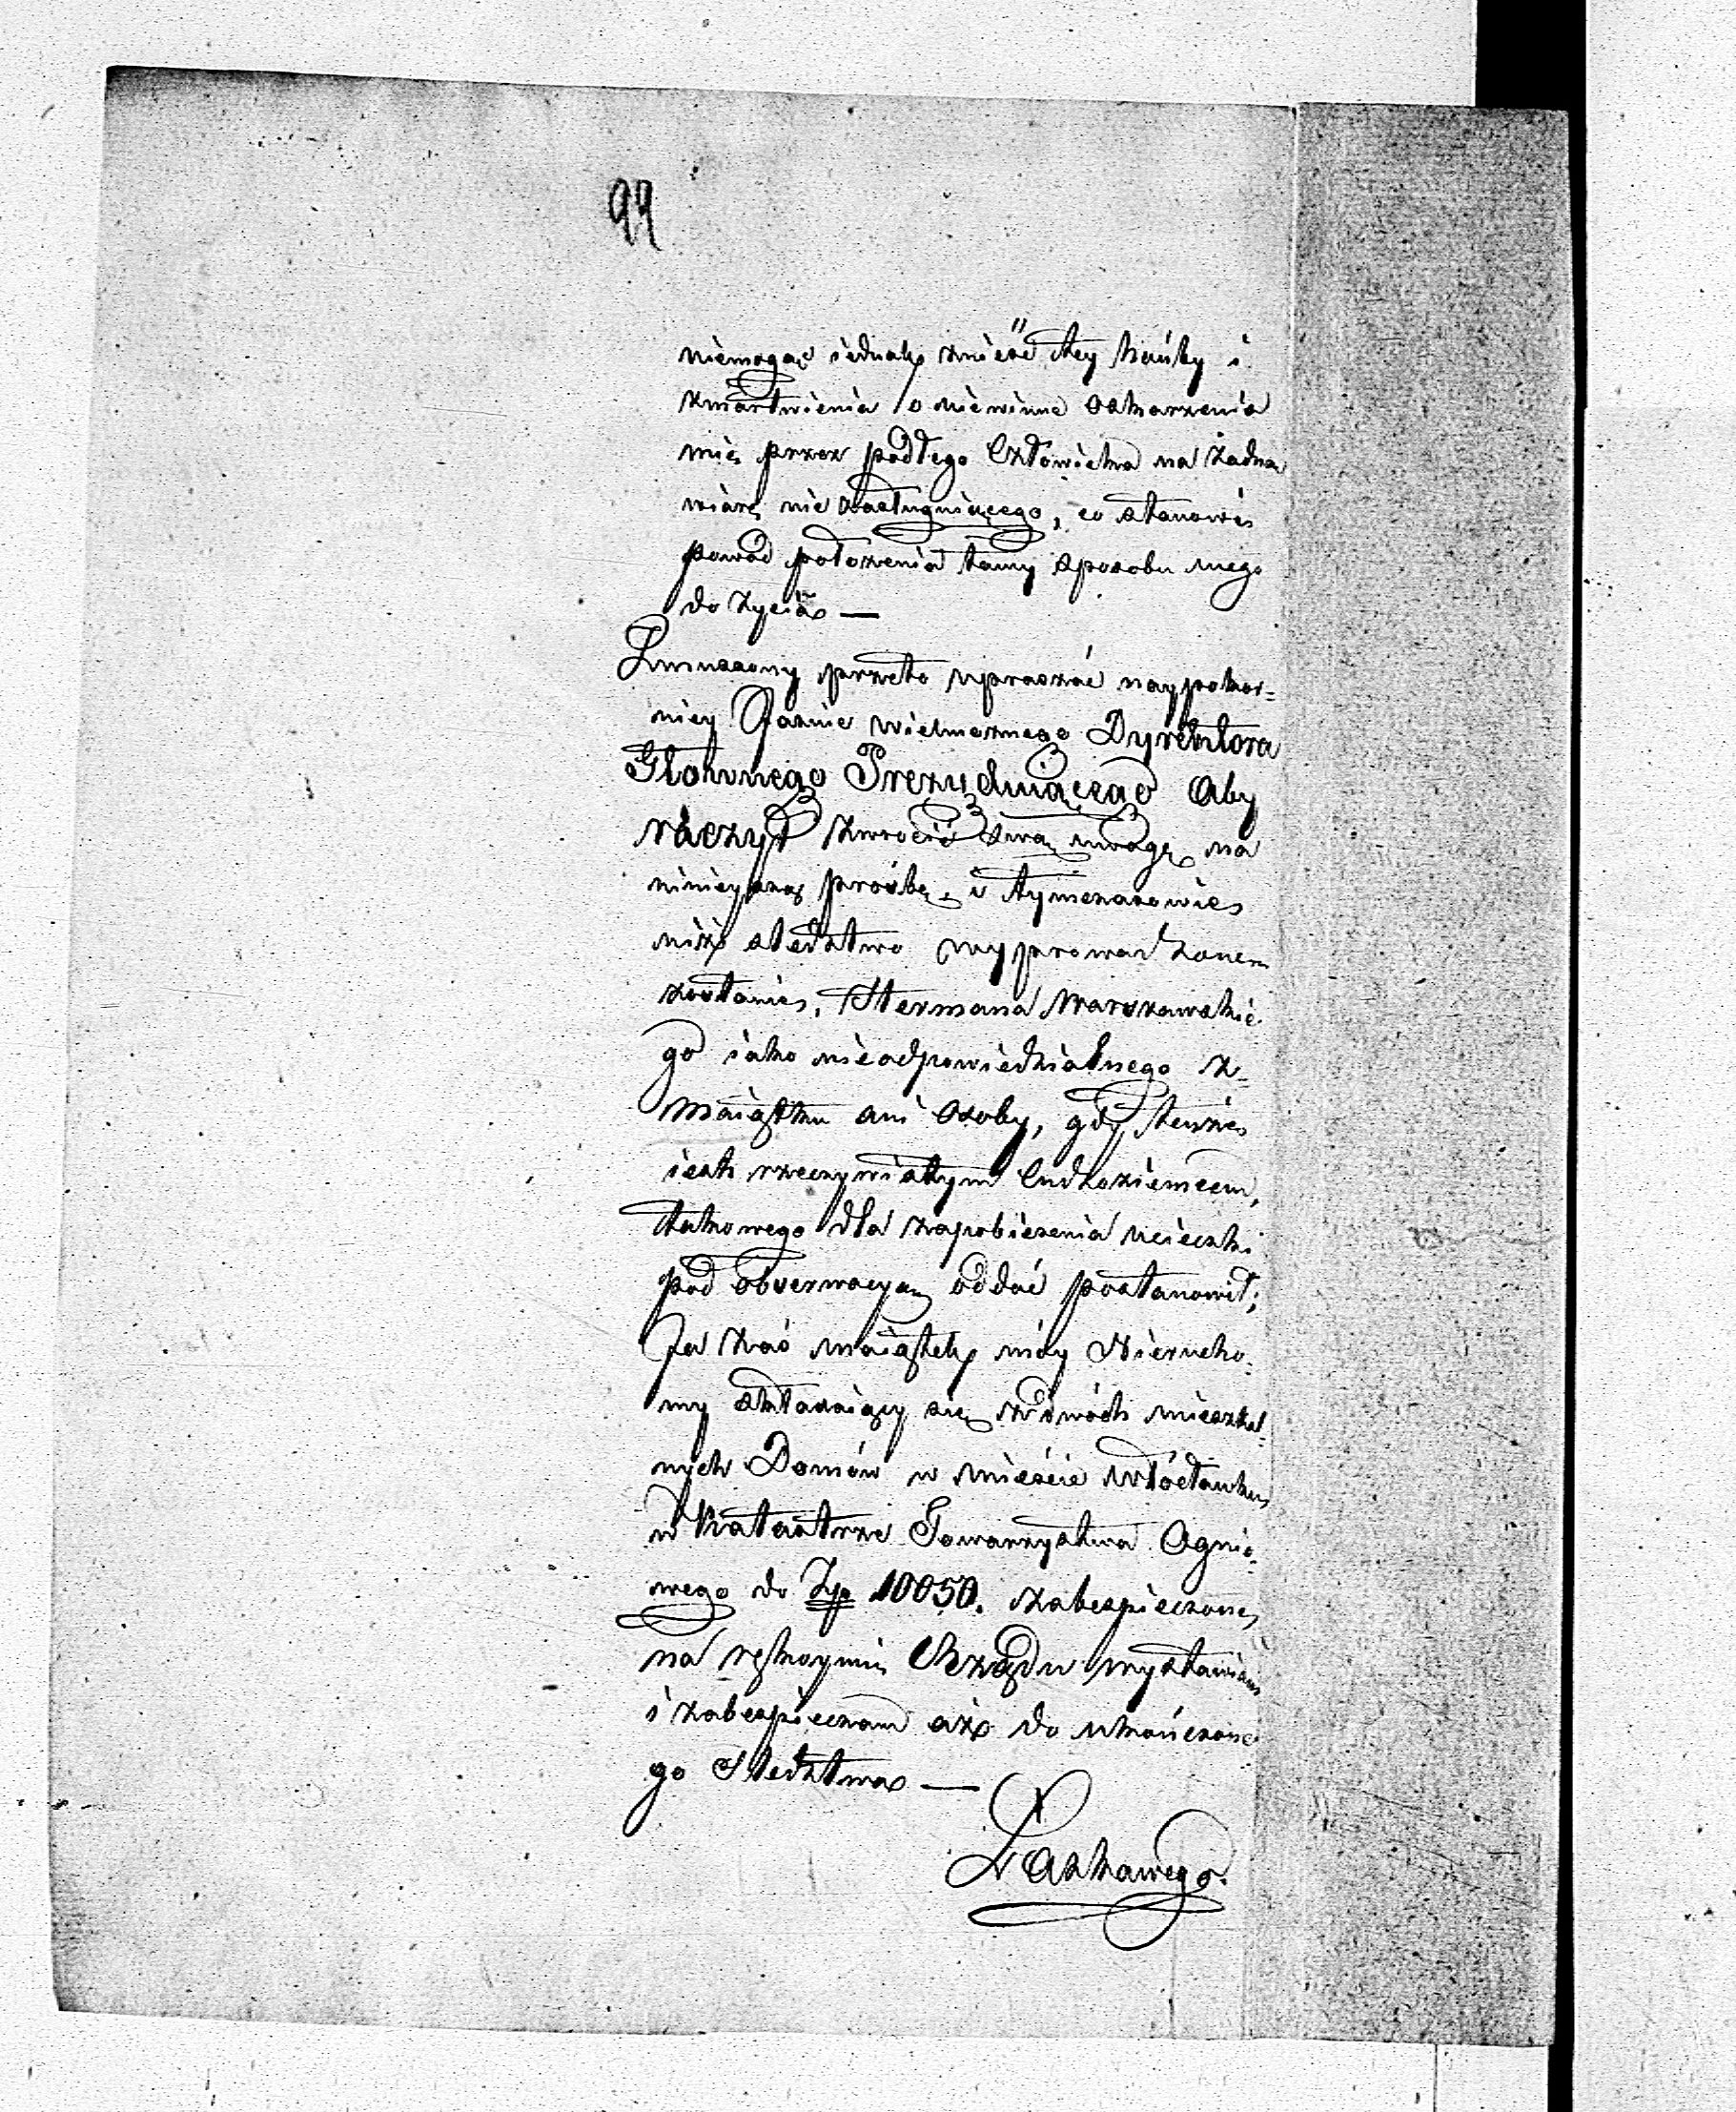 99
niemogąc iednak znieść tey hańby i
zmartwienia o niewinne oskarzenia
mię przez podłego Człowieka na żadna
wiarę nie zasługuiącego, co stanowi
powód położenia tamy sposobu mego
do życia —
Zmuszony przeto upraszać naypokor=
niey Jaśnie Wielmożnego Dyrektora
Głownego Prezyduiącego Aby
raczył zwrócić swą uwagę na
ninieyszą prośbę, i tymczasowie
niż sledztwo wyprowadzone
zostanie, Hermana Warszawskie
go iako nieodpowiedzialnego z
maiątku ani Osoby, gdy tenże
iest rzeczywistym Cudzoziemcem,
takowego dla zapobieżenia ucieczki
pod obserwacyą oddać postanowił;
Ja zaś maiątek móy Nierucho-
my składaiący się z dwóch mieszkal=
nych Domów w mieście Włocławku
w Katastrze Towarzystwa Ognio-
wego do Złp 10050. zabezpieczone
na rękoymię Rządu wystawiam
i zabezpieczam aż do ukończone
go Sledztwa —
Łaskawego.